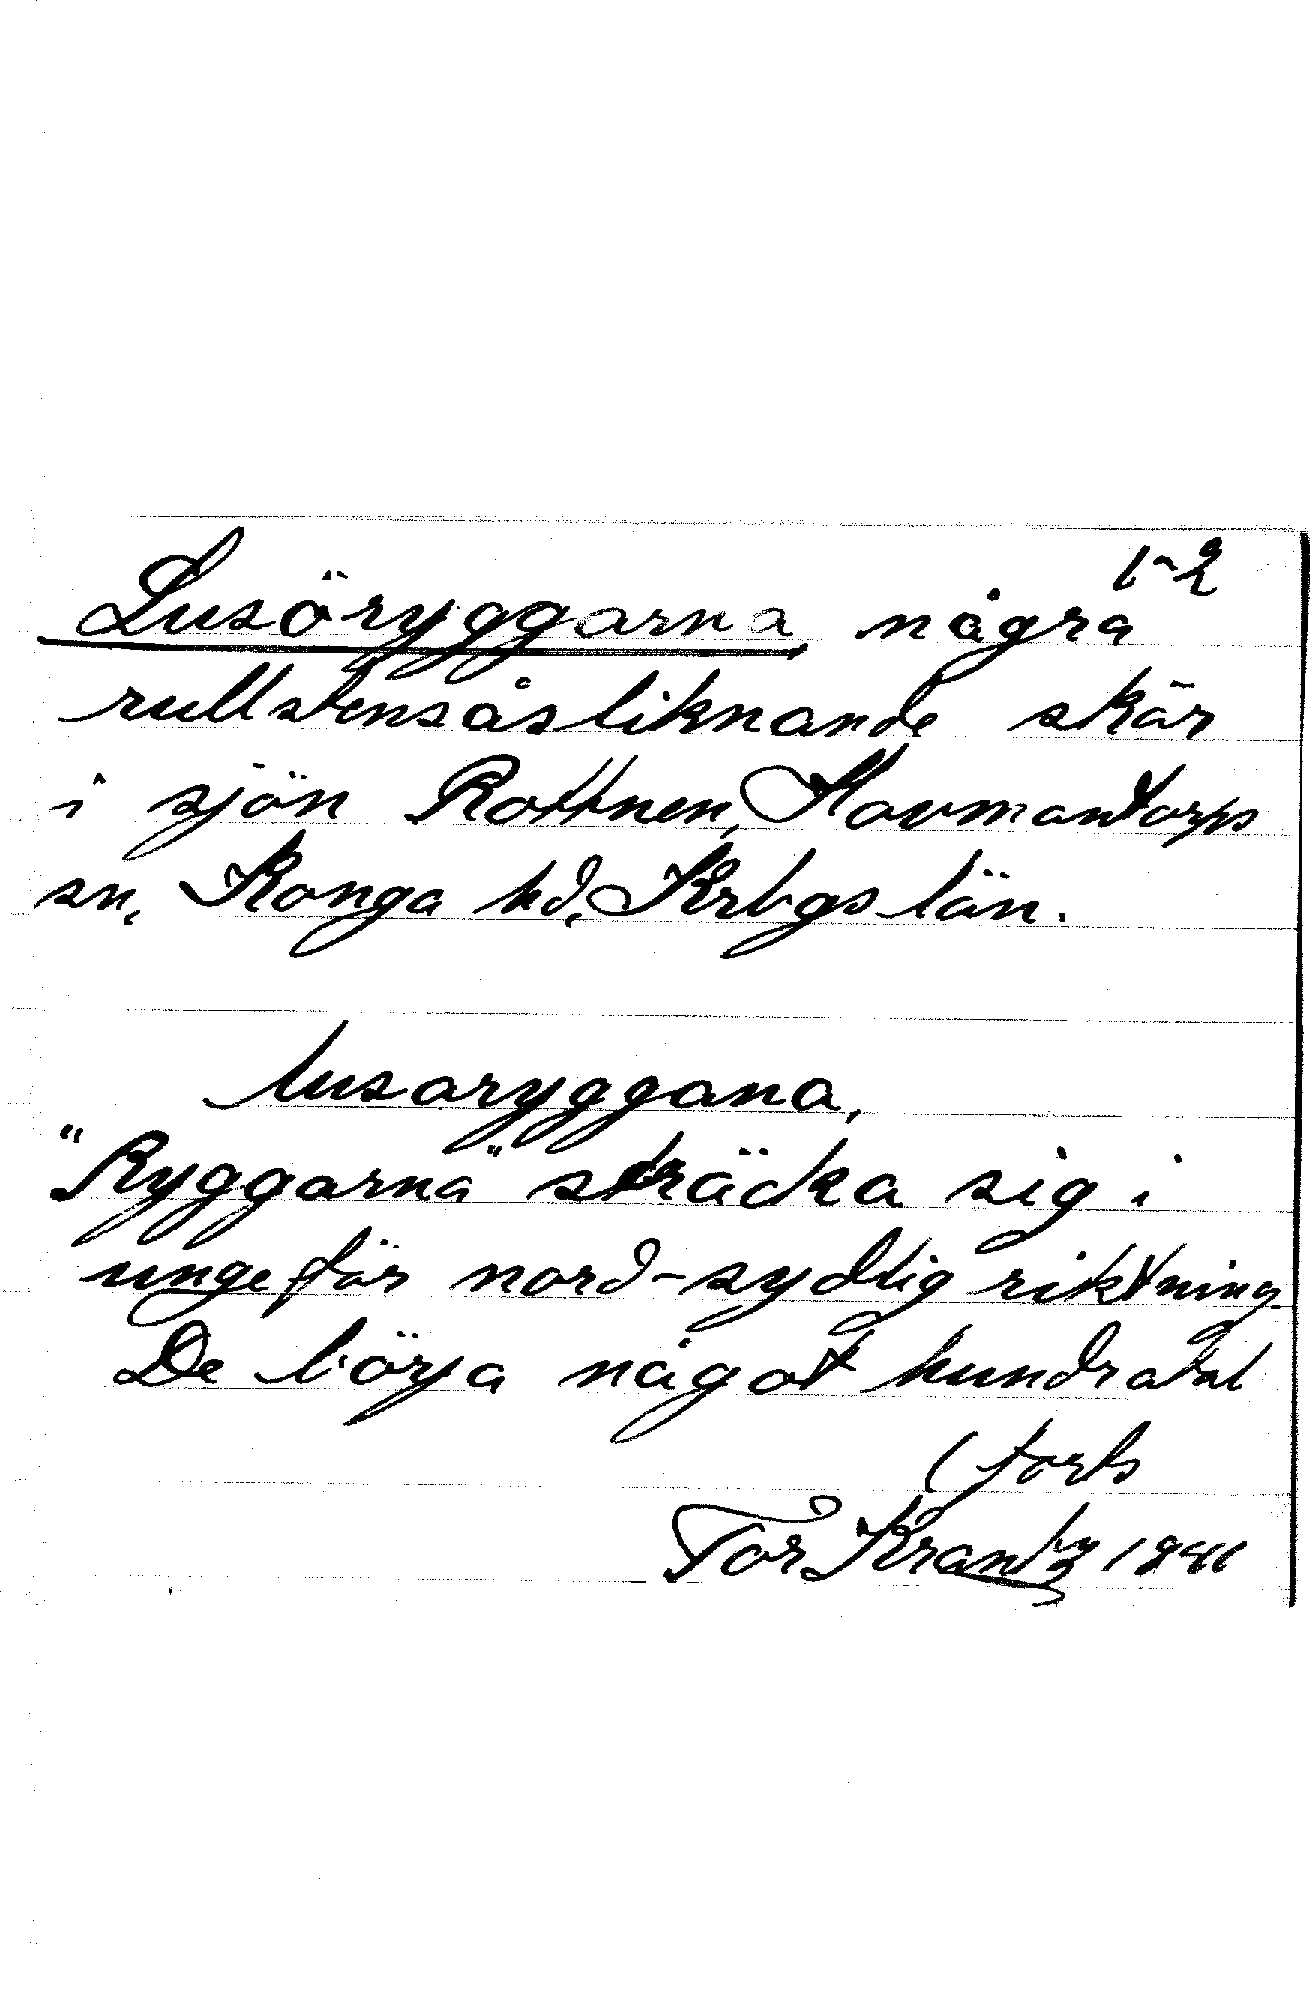 1-2
Lusöryggarna, några
rullstensåsliknande skär
i sjön Rottnen, Hovmantorps
sn, Konga hd, Krbgs län.
lusaryggana,
"Ryggarna" sträcka sig i
ungefär nord-sydlig riktning
De börja något hundratal
(forts
Tor Krantz 1941